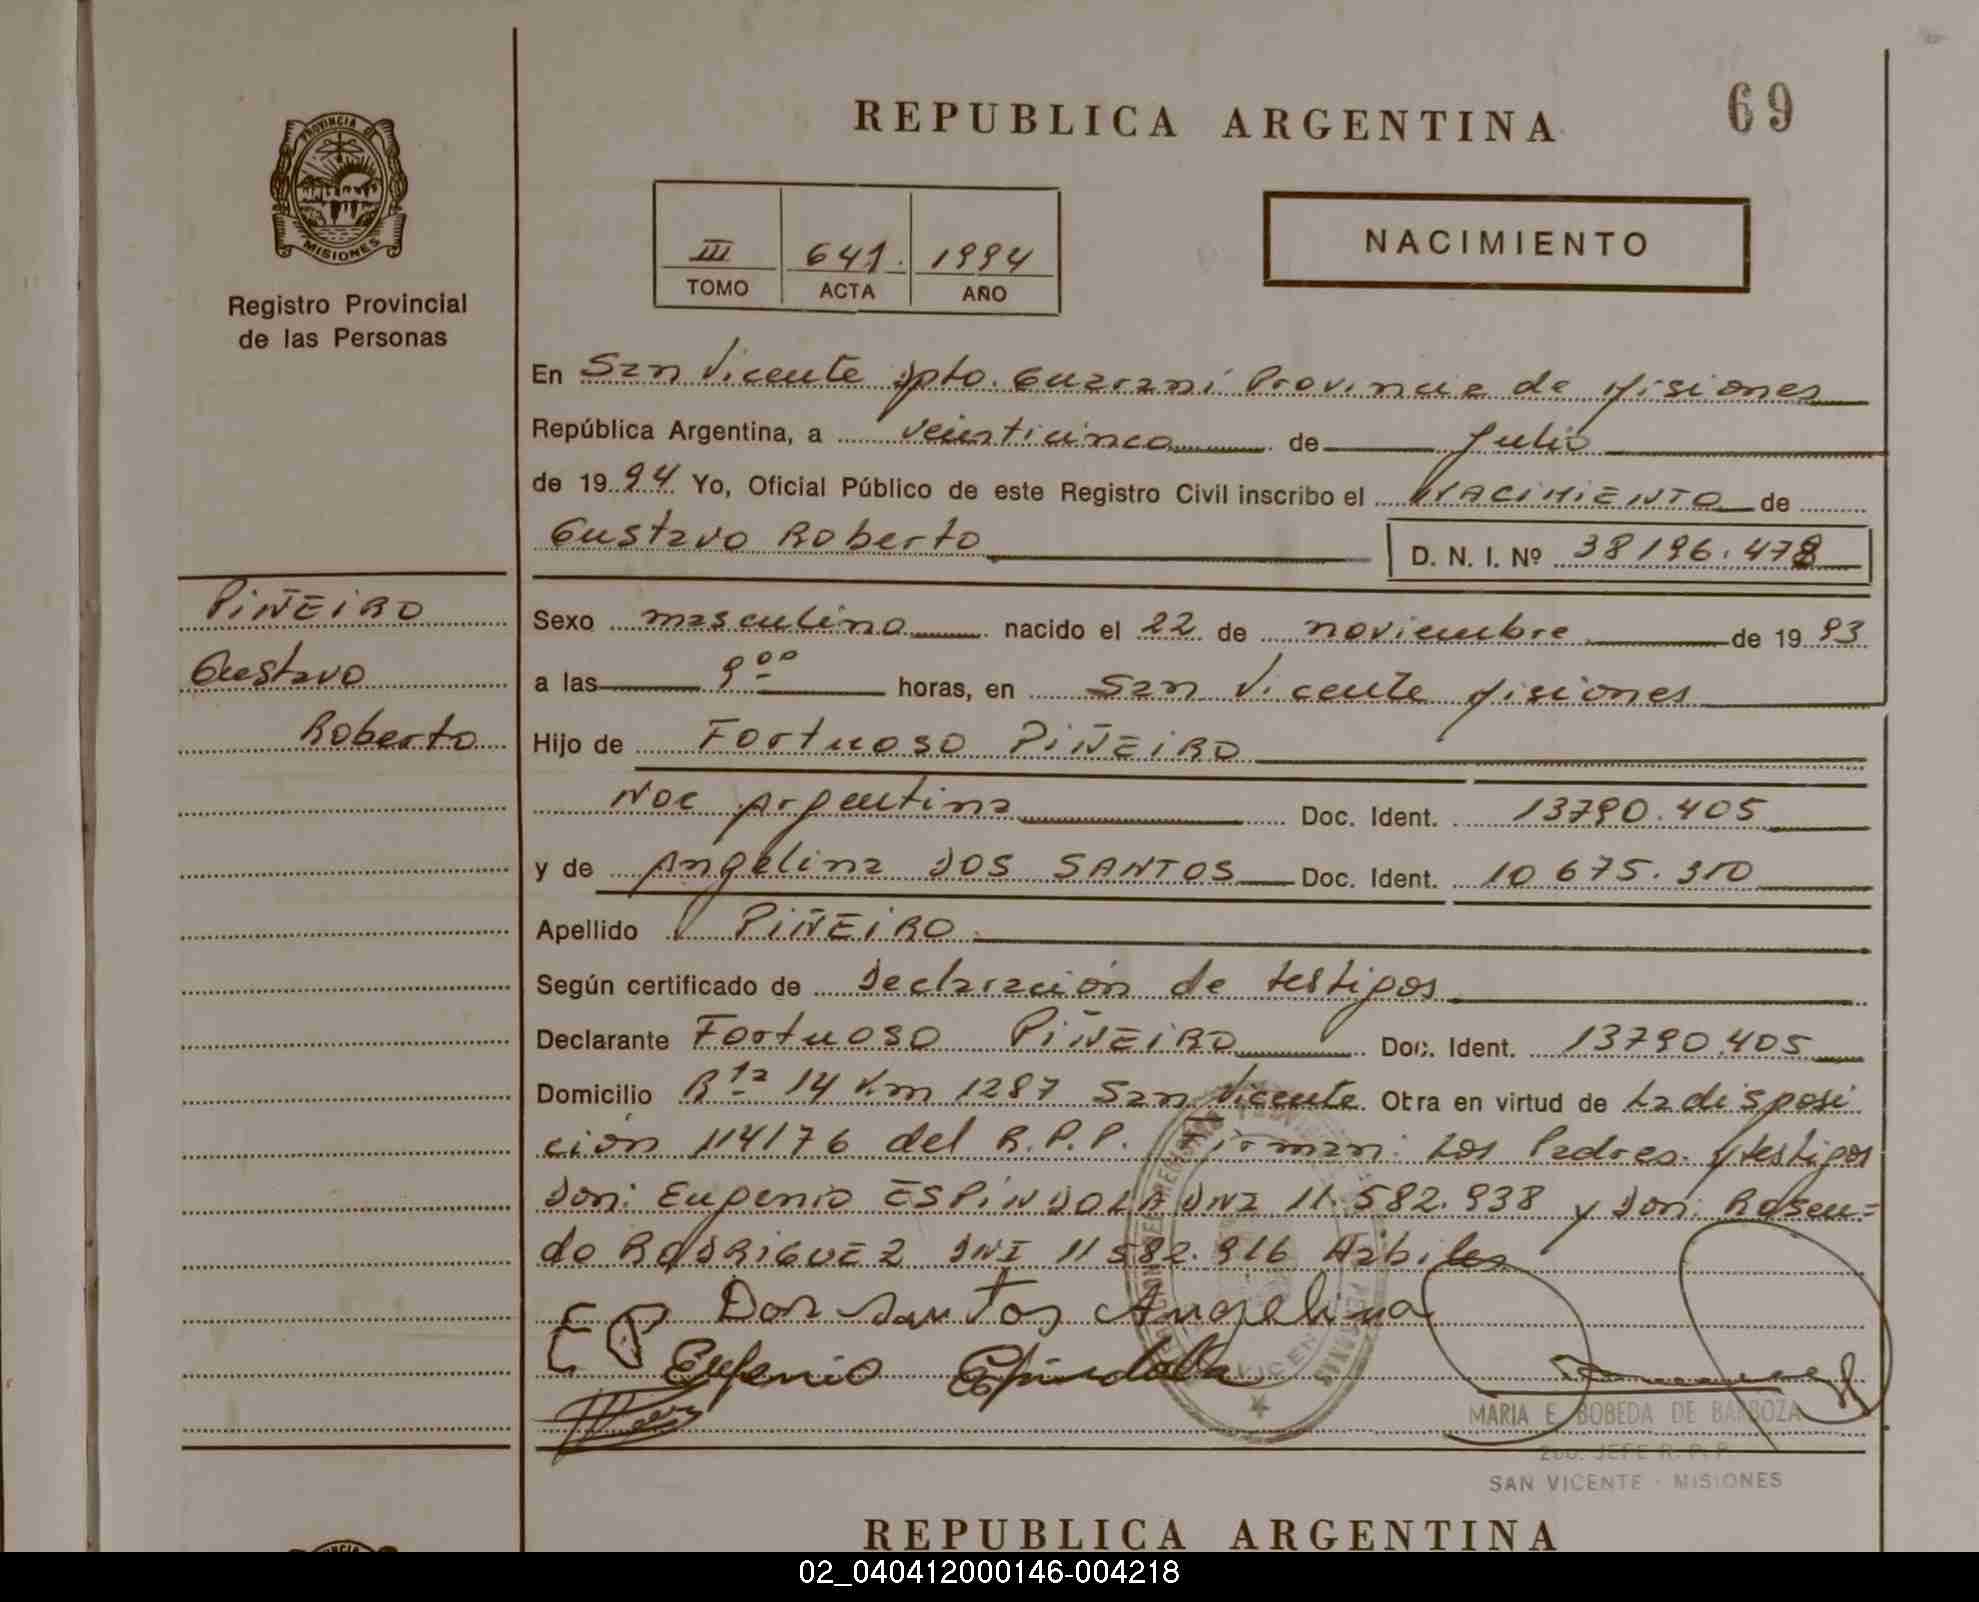 REPUBLICA ARGENTINA
69
PROVINCIA DE
MISIONES
Registro Provincial
de las Personas
III 641. 1994
TOMO ACTA AÑO
NACIMIENTO
En San Vicente Dpto. Guaraní Provincia de Misiones
República Argentina, a veinticinco de Julio
de 1994 Yo, Oficial Público de este Registro Civil inscribo el NACIMIENTO de
Gustavo Roberto D. N. I. Nº 38196.478
PIÑEIRO
Gustavo
Roberto
Sexo masculino nacido el 22 de noviembre de 1993
a las 9ºº horas, en San Vicente Misiones
Hijo de Fortuoso PIÑEIRO
Nac Argentina Doc. Ident. 13790.405
y de Angelina DOS SANTOS Doc. Ident. 10675.310
Apellido PIÑEIRO
Según certificado de Declaración de testigos
Declarante Fortuoso PIÑEIRO Doc. Ident. 13790.405
Domicilio Rta 14 Km 1287 San Vicente. Otra en virtud de La disposi
ción 114/76 del R.P.P. Firman: Los Padres. y testigos
Don: Eugenio ESPINDOLA DNI 11.582.938 y Don: Rosen=
do RODRIGUEZ DNI 11582.916 Hábiles
Dos Santos Angelina
Eugenio Espindola
MARIA E. BOBEDA DE BARBOZA
2DO. JEFE R. P. P.
SAN VICENTE - MISIONES
REPUBLICA ARGENTINA
02_040412000146-004218